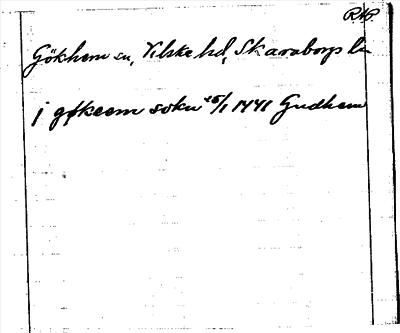 RAP.
Gökhem sn, Vilske hd, Skaraborgs län
j gøkeem sokn 25/1 1441 Gudhem